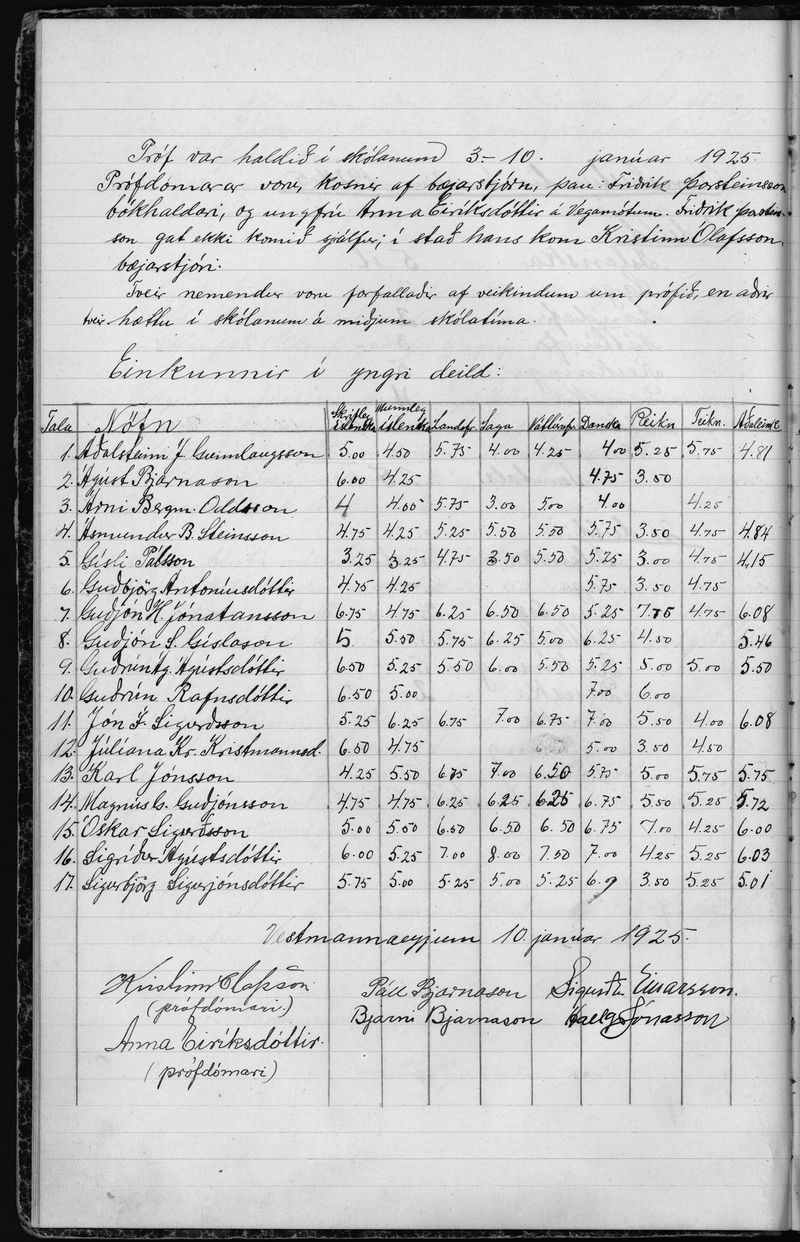 Próf var haldið í skólanum 3-10. janúar 1925.
Prófdómarar voru, kosnir af bæjarstjórn, þau: Friðrik Þorsteinsson
bókhaldari, og ungfrú Anna Eiríksdóttir á Vegamótum. Friðrik Þorsteins-
son gat ekki komið sjálfur; í stað hans kom Kristinn Ólafsson,
bæjarstjóri.
Tveir nemendur voru forfallaðir af veikindum um prófið, en aðrir
tveir hættu í skólanum á miðjum skólatíma.
Einkunnir í yngri deild:
Tala Nöfn Skrifleg íslenska Munnleg íslenska Landafr. Saga Náttúrufr. Danska Reikn Teikn. Aðaleink
1. Aðalsteinn J. Gunnlaugsson 5.00 4.50 5.75 4.00 4.25 4.00 5.25 5.75 4.81
2. Ágúst Bjarnason 6.00 4.25 4.75 3.50
3. Árni Bergm. Oddsson 4 4.00 5.75 3.00 5.00 4.00 4.25
4. Ásmundur B. Steinsson 4.75 4.25 5.25 5.50 5.50 5.75 3.50 4.75 4.84
5. Gísli Pálsson 3.25 3.25 4.75 3.50 5.50 5.25 3.00 4.75 4.15
6. Guðbjörg Antoníusdóttir 4.75 4.25 5.75 3.50 4.75
7. Guðjón H. Jónatansson 6.75 4.75 6.25 6.50 6.50 5.25 7.75 4.75 6.08
8. Guðjón S. Gíslason 5 5.50 5.75 6.25 5.00 6.25 4.50 5.46
9. Guðrún Ág. Ágústsdóttir 6.50 5.25 5.50 6.00 5.50 5.25 5.00 5.00 5.50
10. Guðrún Rafnsdóttir 6.50 5.00 7.00 6.00
11. Jón Í. Sigurðsson 5.25 6.25 6.75 7.00 6.75 7.00 5.50 4.00 6.08
12. Júlíana Kr. Kristmannsd. 6.50 4.75 5.00 3.50 4.50
13. Karl Jónsson 4.25 5.50 6.75 7.00 6.50 5.75 5.00 5.75 5.75
14. Magnús G. Guðjónsson 4.75 4.75 6.25 6.25 6.25 6.75 5.50 5.25 5.72
15. Óskar Sigurðsson 5.00 5.50 6.50 6.50 6.50 6.75 7.00 4.25 6.00
16. Sigríður Ágústsdóttir 6.00 5.25 7.00 8.00 7.50 7.00 4.25 5.25 6.03
17. Sigurbjörg Sigurjónsdóttir 5.75 5.00 5.25 5.00 5.25 6.0 3.50 5.25 5.01
Vestmannaeyjum 10. janúar 1925.
Kristinn Ólafsson Páll Bjarnason Sigurður Einarsson.
(prófdómari.) Bjarni Bjarnason Hallgr. Jónasson
Anna Eiríksdóttir.
(prófdómari)